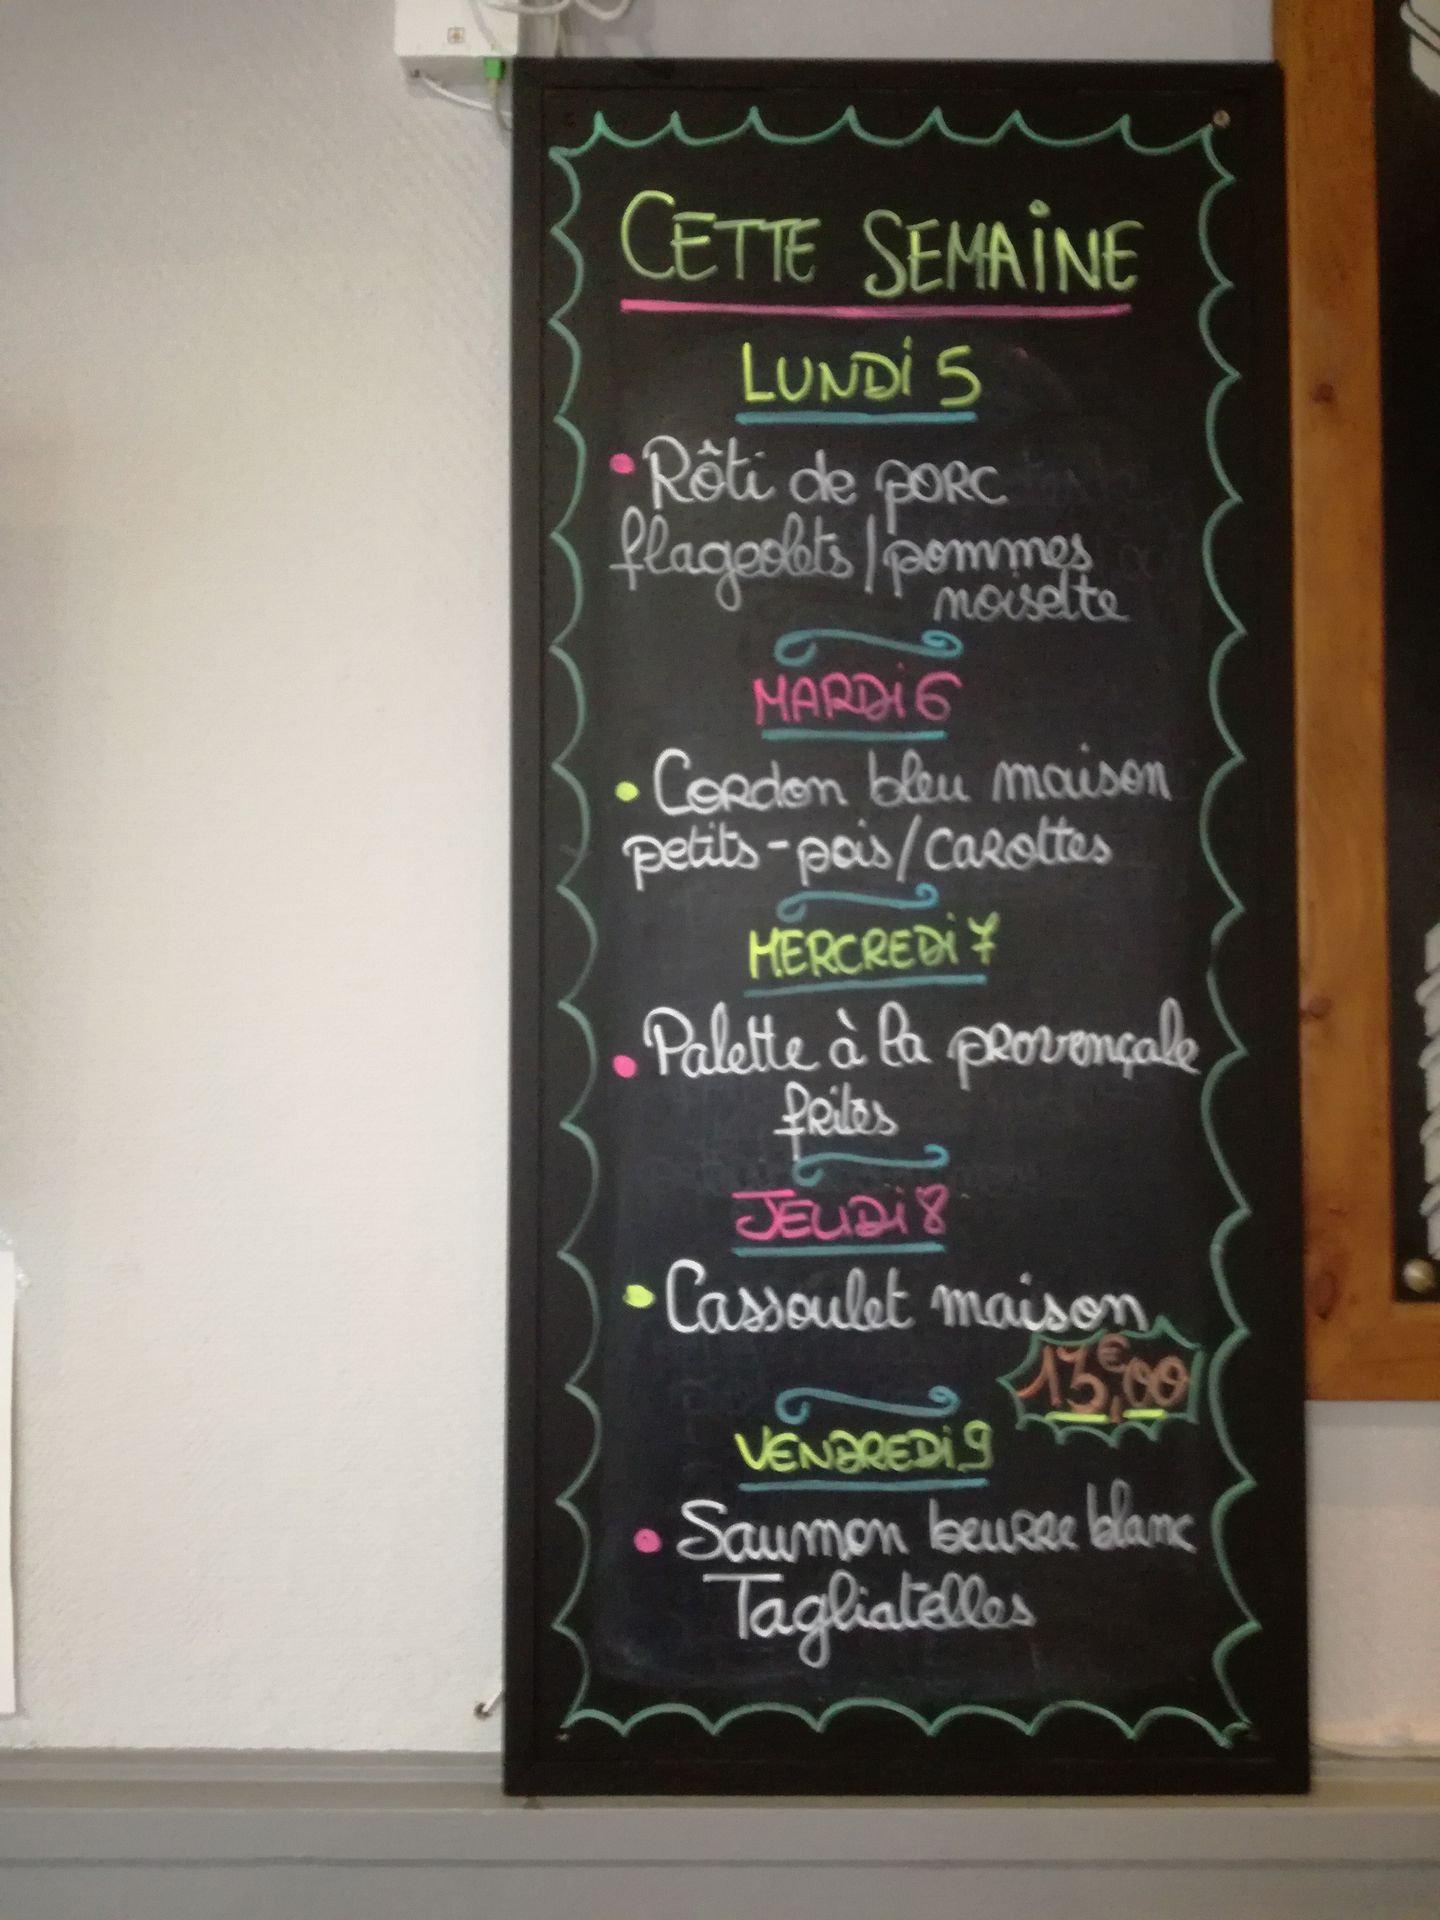 CETTE SEMAINE
LUNDI 5
• Rôti de porc
flageolets / pommes
noisette
MARDI 6
• Cordon bleu maison
petits-pois / carottes
MERCREDI 7
• Palette à la provençale
frites
JEUDI 8
• Cassoulet maison
13,€00
VENDREDI 9
• Saumon beurre blanc
Tagliatelles